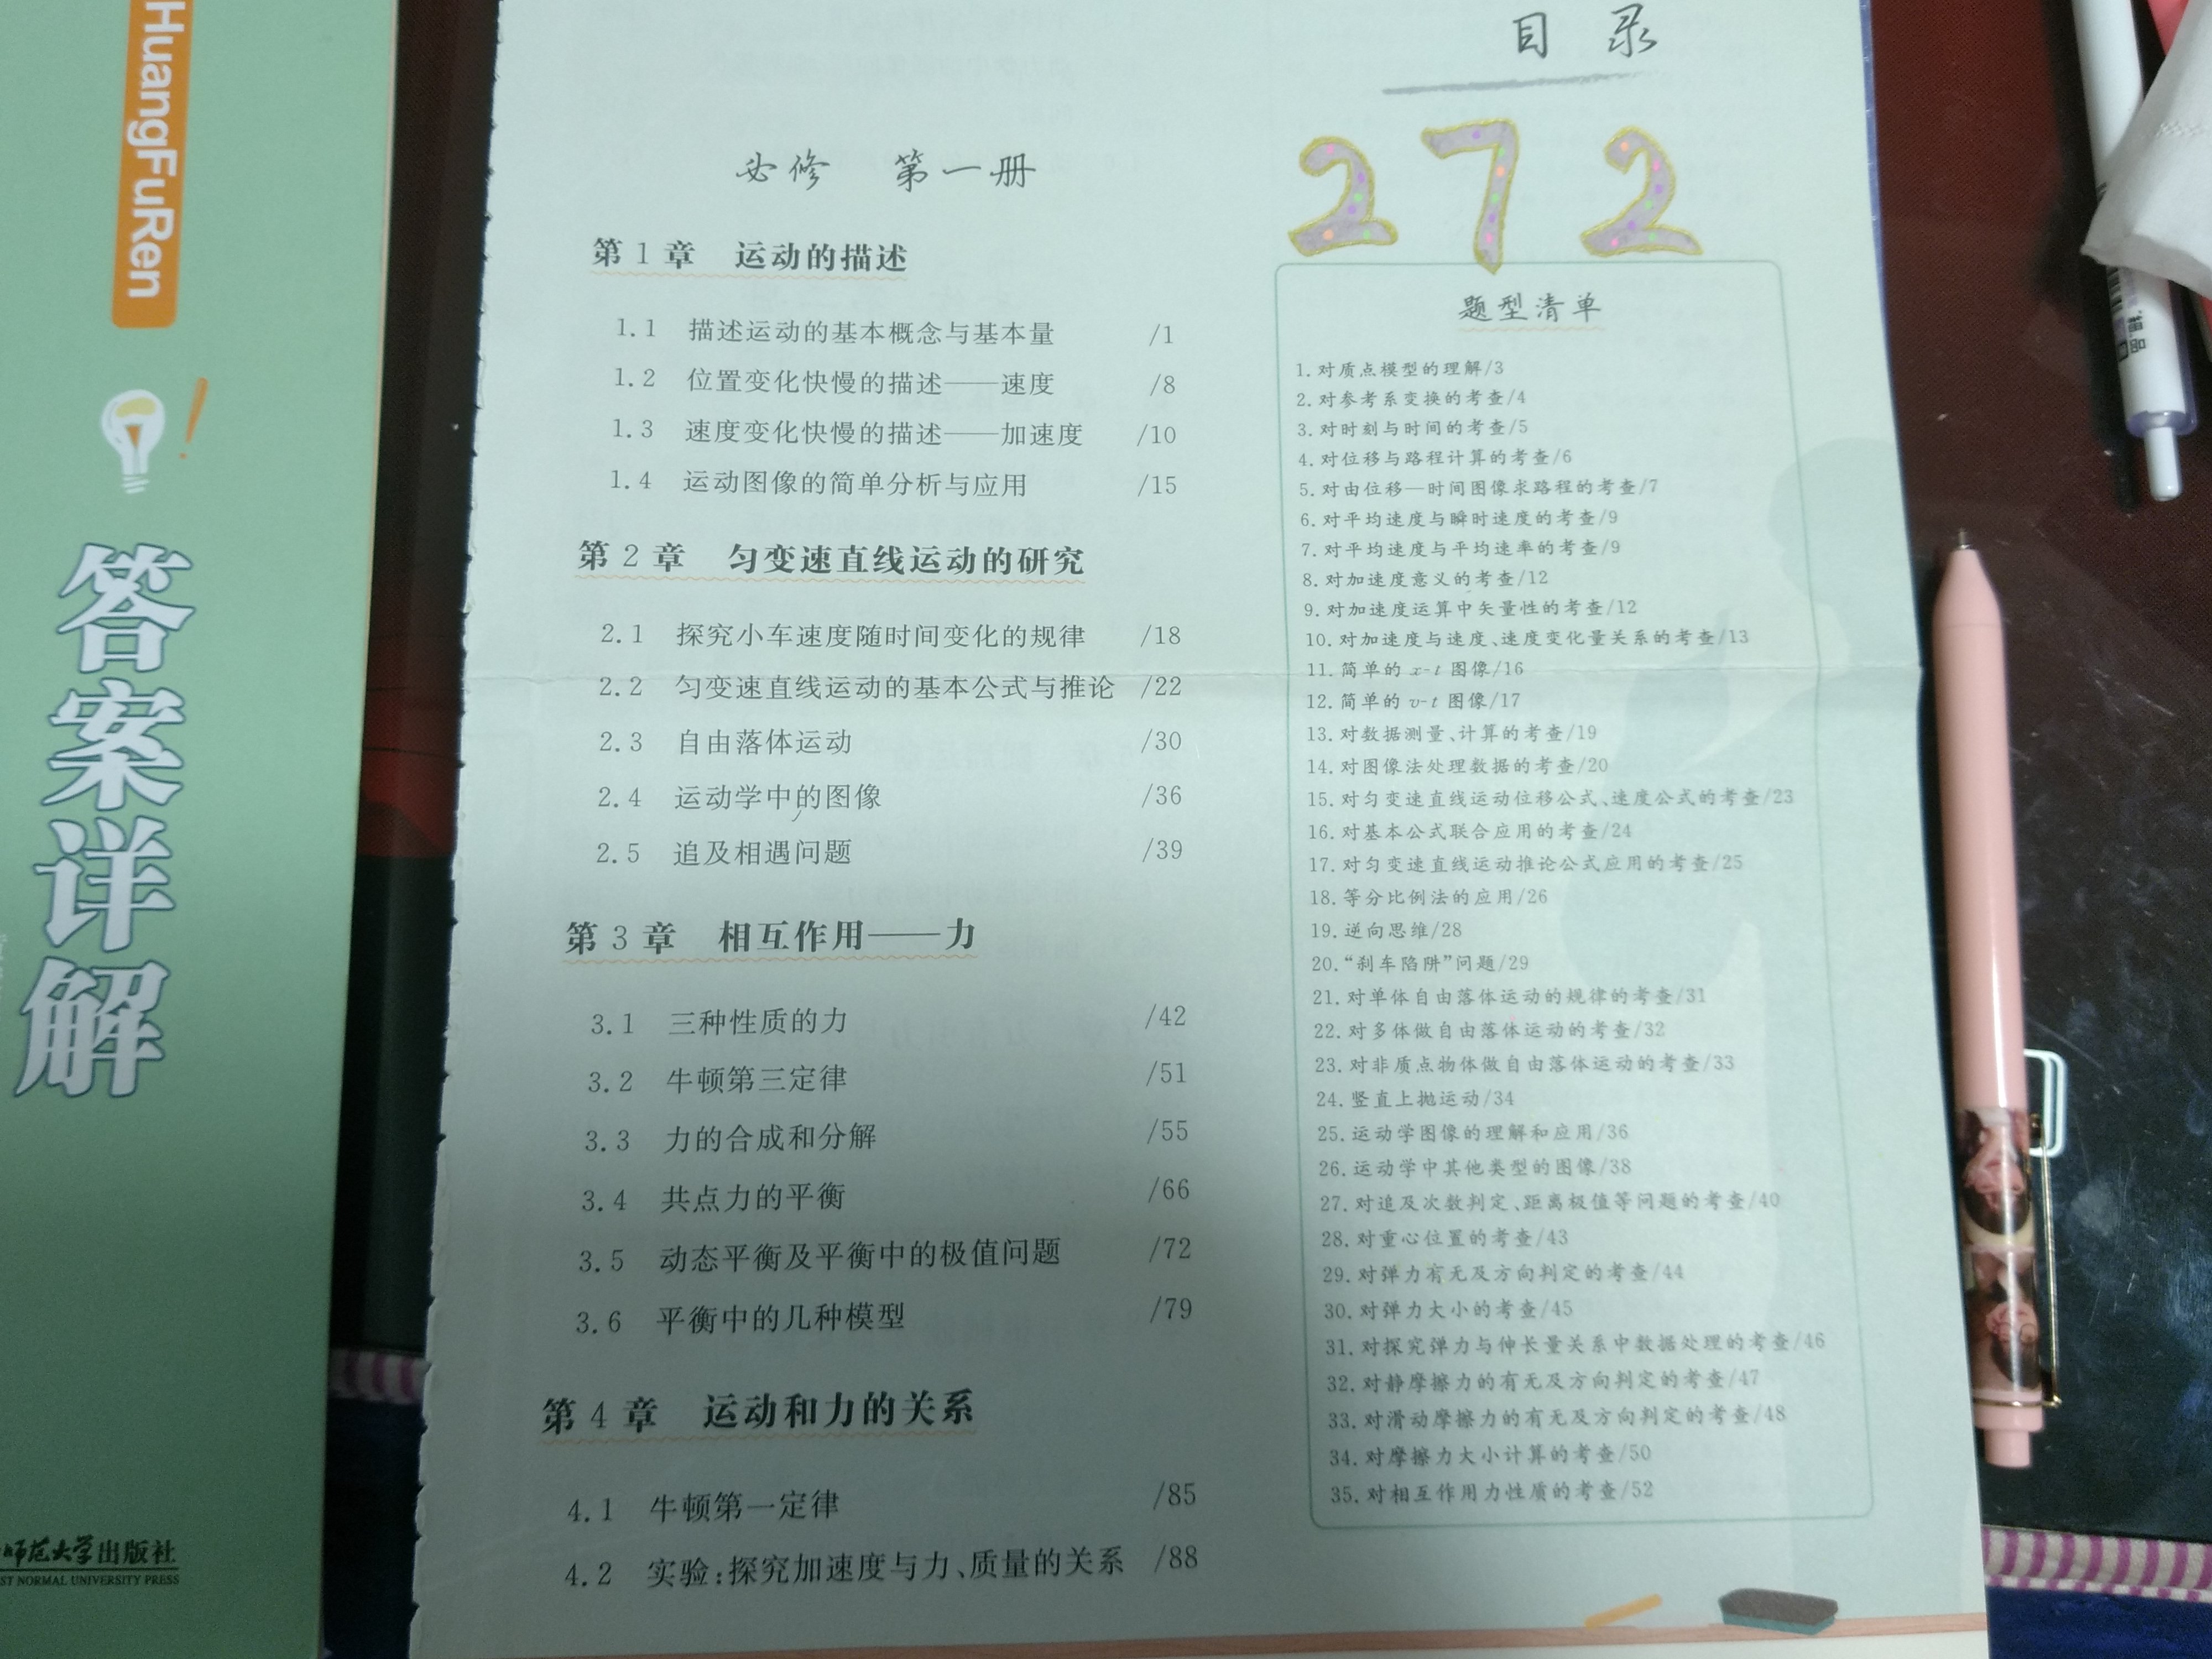 HuangFuRen
答案详解
师范大学出版社
ST NORMAL UNIVERSITY PRESS
目 录
272
必修 第一册
第1章 运动的描述
1.1 描述运动的基本概念与基本量 /1
1.2 位置变化快慢的描述——速度 /8
1.3 速度变化快慢的描述——加速度 /10
1.4 运动图像的简单分析与应用 /15
第2章 匀变速直线运动的研究
2.1 探究小车速度随时间变化的规律 /18
2.2 匀变速直线运动的基本公式与推论 /22
2.3 自由落体运动 /30
2.4 运动学中的图像 /36
2.5 追及相遇问题 /39
第3章 相互作用——力
3.1 三种性质的力 /42
3.2 牛顿第三定律 /51
3.3 力的合成和分解 /55
3.4 共点力的平衡 /66
3.5 动态平衡及平衡中的极值问题 /72
3.6 平衡中的几种模型 /79
第4章 运动和力的关系
4.1 牛顿第一定律 /85
4.2 实验:探究加速度与力、质量的关系 /88
题型清单
1. 对质点模型的理解/3
2. 对参考系变换的考查/4
3. 对时刻与时间的考查/5
4. 对位移与路程计算的考查/6
5. 对由位移—时间图像求路程的考查/7
6. 对平均速度与瞬时速度的考查/9
7. 对平均速度与平均速率的考查/9
8. 对加速度意义的考查/12
9. 对加速度运算中矢量性的考查/12
10. 对加速度与速度、速度变化量关系的考查/13
11. 简单的 x-t 图像/16
12. 简单的 v-t 图像/17
13. 对数据测量、计算的考查/19
14. 对图像法处理数据的考查/20
15. 对匀变速直线运动位移公式、速度公式的考查/23
16. 对基本公式联合应用的考查/24
17. 对匀变速直线运动推论公式应用的考查/25
18. 等分比例法的应用/26
19. 逆向思维/28
20. “刹车陷阱”问题/29
21. 对单体自由落体运动的规律的考查/31
22. 对多体做自由落体运动的考查/32
23. 对非质点物体做自由落体运动的考查/33
24. 竖直上抛运动/34
25. 运动学图像的理解和应用/36
26. 运动学中其他类型的图像/38
27. 对追及次数判定、距离极值等问题的考查/40
28. 对重心位置的考查/43
29. 对弹力有无及方向判定的考查/44
30. 对弹力大小的考查/45
31. 对探究弹力与伸长量关系中数据处理的考查/46
32. 对静摩擦力的有无及方向判定的考查/47
33. 对滑动摩擦力的有无及方向判定的考查/48
34. 对摩擦力大小计算的考查/50
35. 对相互作用力性质的考查/52